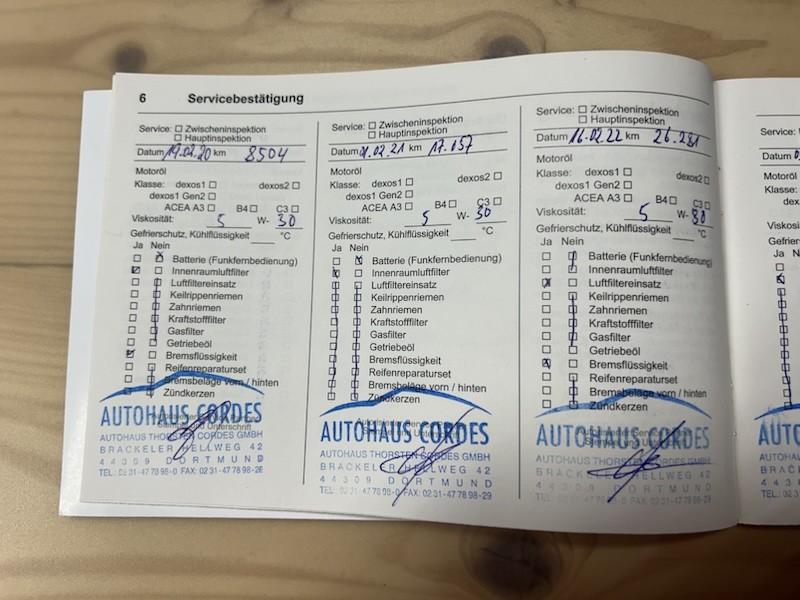 6 Servicebestätigung
Service: Zwischeninspektion
Hauptinspektion
Datum 19.02.20 km 8504
Motoröl
Klasse: dexos1 dexos2
dexos1 Gen2
ACEA A3 B4 C3
Viskosität: 5 W- 30
Gefrierschutz, Kühlflüssigkeit °C
Ja Nein
Batterie (Funkfernbedienung)
Innenraumluftfilter
Luftfiltereinsatz
Keilrippenriemen
Zahnriemen
Kraftstofffilter
Gasfilter
Getriebeöl
Bremsflüssigkeit
Reifenreparaturset
Bremsbeläge vorn / hinten
Zündkerzen
AUTOHAUS CORDES
AUTOHAUS THORSTEN CORDES GMBH
BRACKELER HELLWEG 42
44309 DORTMUND
TEL: 02 31-47 78 98-0 FAX: 02 31-47 78 98-29
Service: Zwischeninspektion
Hauptinspektion
Datum 01.02.21 km 17.057
Motoröl
Klasse: dexos1 dexos2
dexos1 Gen2
ACEA A3 B4 C3
Viskosität: 5 W- 30
Gefrierschutz, Kühlflüssigkeit °C
Ja Nein
Batterie (Funkfernbedienung)
Innenraumluftfilter
Luftfiltereinsatz
Keilrippenriemen
Zahnriemen
Kraftstofffilter
Gasfilter
Getriebeöl
Bremsflüssigkeit
Reifenreparaturset
Bremsbeläge vorn / hinten
Zündkerzen
AUTOHAUS CORDES
AUTOHAUS THORSTEN CORDES GMBH
BRACKELER HELLWEG 42
44309 DORTMUND
TEL: 02 31-47 78 98-0 FAX: 02 31-47 78 98-29
Service: Zwischeninspektion
Hauptinspektion
Datum 16.02.22 km 26.281
Motoröl
Klasse: dexos1 dexos2
dexos1 Gen2
ACEA A3 B4 C3
Viskosität: 5 W- 30
Gefrierschutz, Kühlflüssigkeit °C
Ja Nein
Batterie (Funkfernbedienung)
Innenraumluftfilter
Luftfiltereinsatz
Keilrippenriemen
Zahnriemen
Kraftstofffilter
Gasfilter
Getriebeöl
Bremsflüssigkeit
Reifenreparaturset
Bremsbeläge vorn / hinten
Zündkerzen
AUTOHAUS CORDES
AUTOHAUS THORSTEN CORDES GMBH
BRACKELER HELLWEG 42
44309 DORTMUND
TEL: 02 31-47 78 98-0 FAX: 02 31-47 78 98-29
Service:
Datum
Motoröl
Klasse:
Viskosität:
Ja